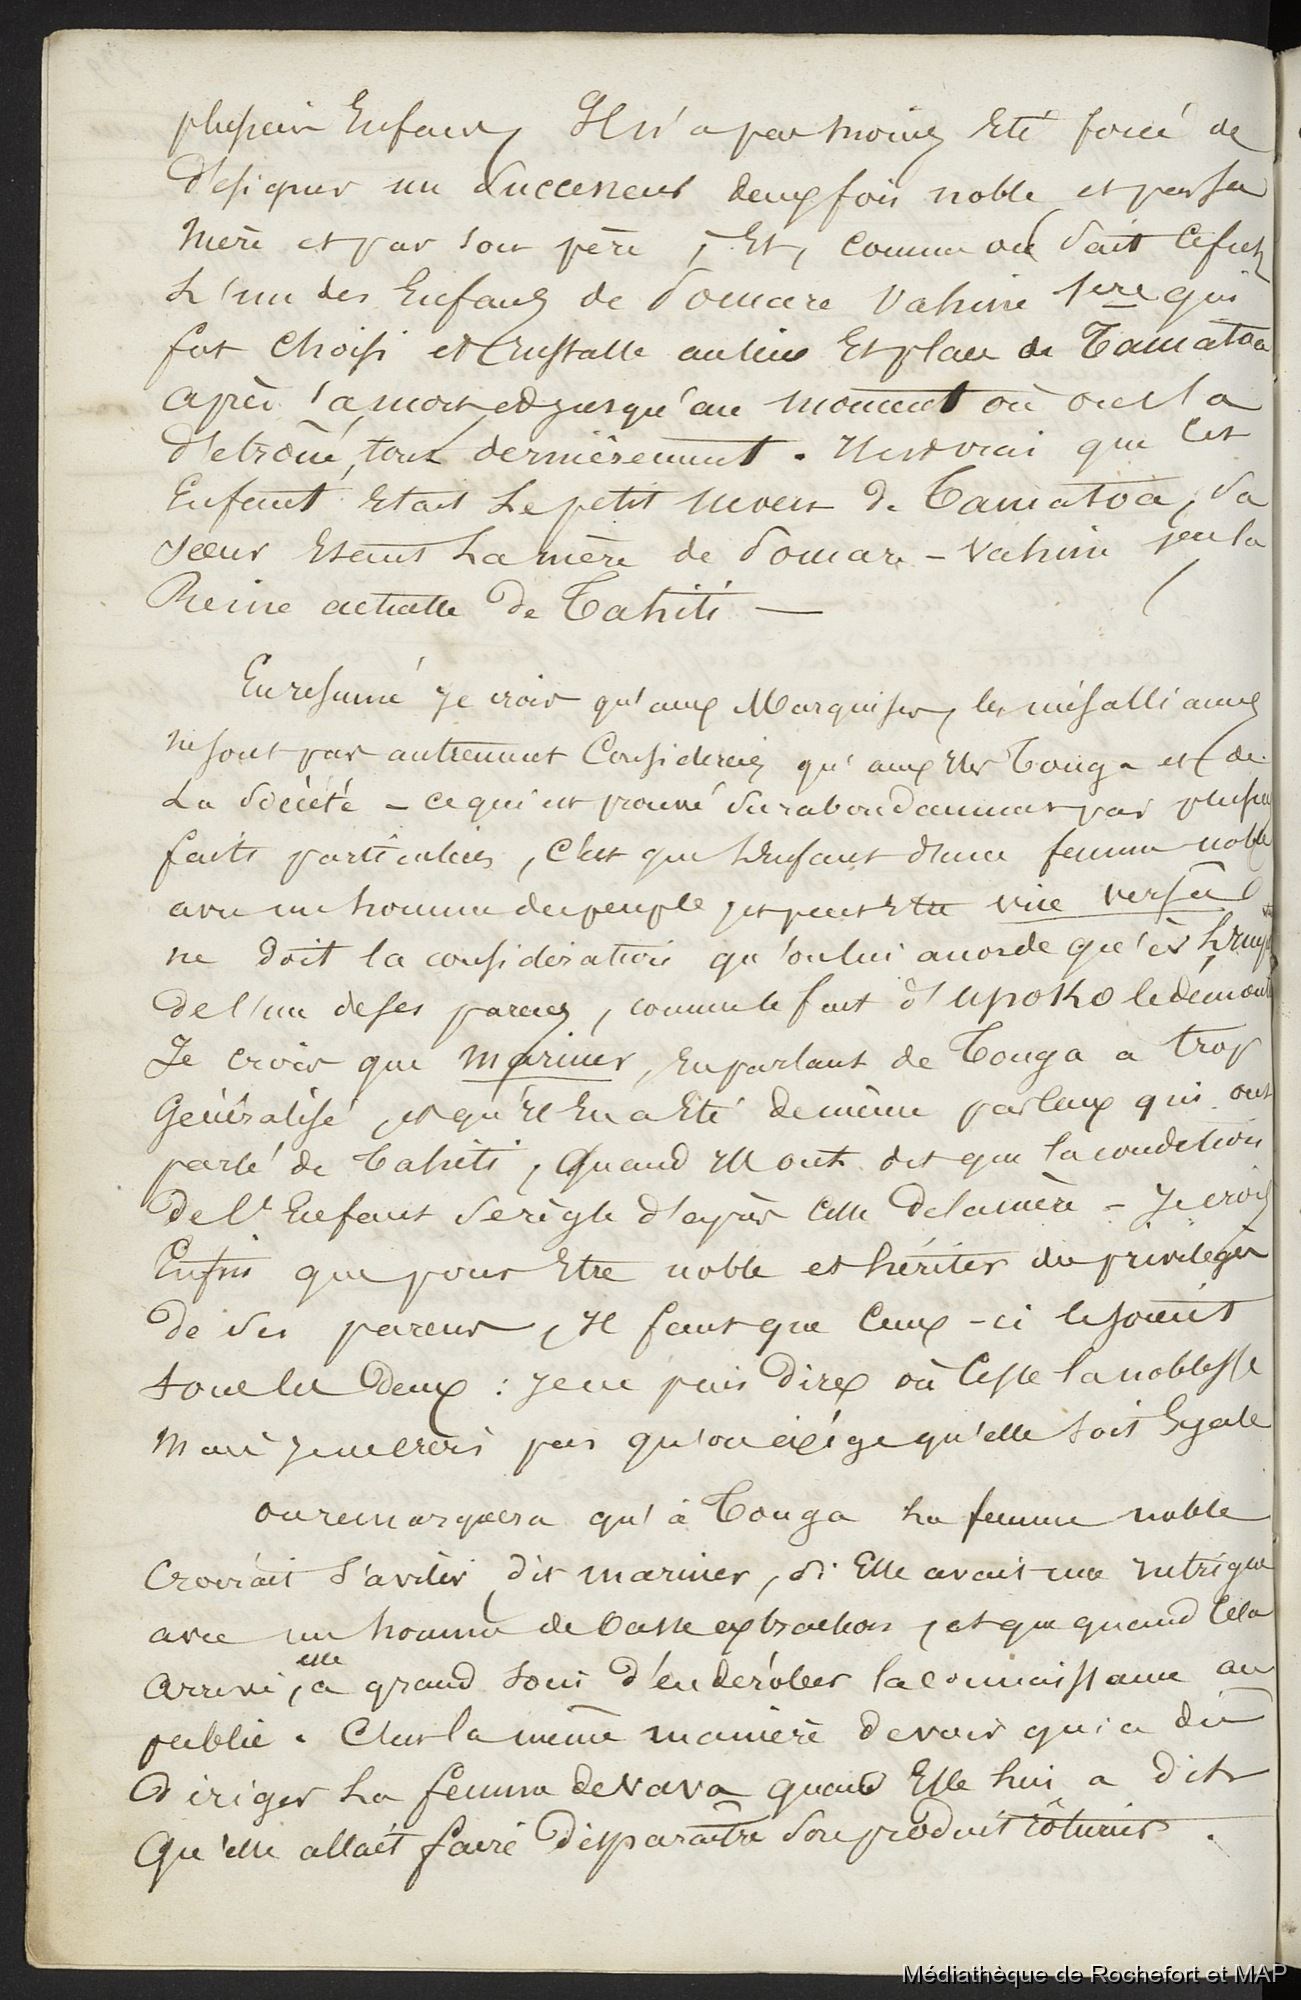 plusieurs Enfans, Il n'a pas moins Eté forcé de
désigner un Successeur deux fois noble et par sa
mère et par son père ; Et, comme on Sait Ce fut
L'un des Enfans de Pomare Vahine 1ere qui
fut choisi et Installé au lieu Et place de Tamatoa
après sa mort et jusqu'au moment où on l'a
détroné, tout dernièrement. Il est vrai que Cet
Enfant Etait Le petit neveu de Tamatoa, Sa
soeur Etant La mère de Pomare - Vahine la
Reine actuelle de Tahiti —
En resumé Je crois qu'aux Marquises, les mésalliances
ne sont pas autrement Considerées qu'aux Iles Tonga et de
La Société - ce qui est prouvé Surabondamment par plusieurs
faits particuliers, C'est que L'Enfant d'une femme noble
avec un homme du peuple, et peut Etre vice versâ
ne doit la considération qu'on lui accorde qu'à
de l'un de ses parens, comme le fait d'Upoko le démontre
Je crois que Mariner, En parlant de Tonga a trop
Généralisé, et qu'Il En a Eté de même par Ceux qui ont
parlé de Tahiti, Quand Ils ont dit que la condition
de l'Enfant Se règle d'après Celle de la mère - Je crois
Enfin que pour Etre noble et hériter des privilèges
de Ses parens, Il faut que Ceux-ci le soient
tous les Deux : Je ne puis Dire où Cesse la noblesse
Mais Je ne crois pas qu'on exige qu'elle soit Egale
on remarquera qu'à Tonga La femme noble
Croirait S'avilir, dit Mariner, Si Elle avait une Intrigue
avec un homme de basse extraction, et que quand Cela
arrive, elle a grand soin d'en dérober la connaissance au
public. C'est la même manière de voir qui a dû
Diriger La femme de Vava quand Elle lui a dit
Qu'elle allait faire Disparaître Son produit rôturier.
Médiathèque de Rochefort et MAP